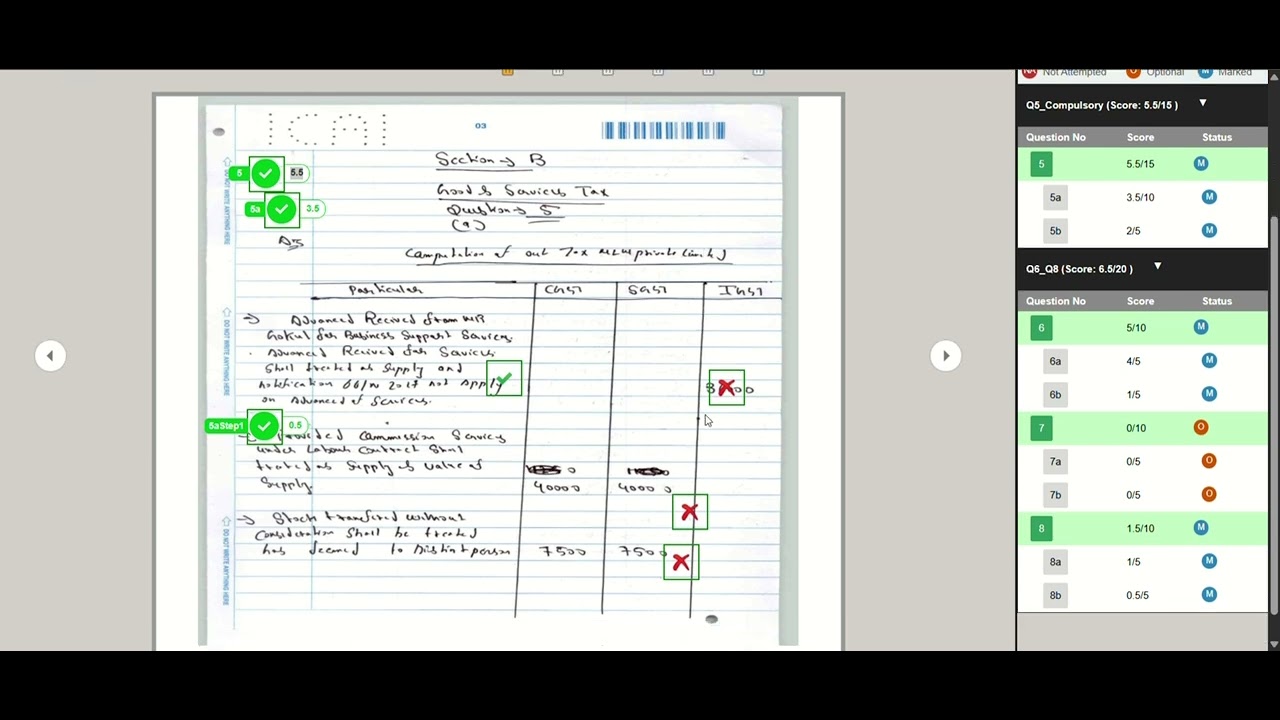 Not Attempted Optional Marked
Q5_Compulsory (Score: 5.5/15 )
Question No Score Status
5 5.5/15 M
5a 3.5/10 M
5b 2/5 M
Q6_Q8 (Score: 6.5/20 )
Question No Score Status
6 5/10 M
6a 4/5 M
6b 1/5 M
7 0/10 O
7a 0/5 O
7b 0/5 O
8 1.5/10 M
8a 1/5 M
8b 0.5/5 M
ICAI
03
DO NOT WRITE ANYTHING HERE
DO NOT WRITE ANYTHING HERE
DO NOT WRITE ANYTHING HERE
5 5.5
5a 3.5
5aStep1 0.5
Section → B
Goods Services Tax
Question → 5
(a)
Ans
Computation of out Tax private Limited
Particular CGST SGST IGST
→ Advanced Recived from MR
for Business Support Services.
Advanced Recived for Services
Shall treated as Supply and
notification 66/ 2017 not Apply
on Advanced of Services.
→ Provided Commission Services
under Labour Contract Shall
treated as Supply & value of
Supply. 40000 40000
→ Stock transfered without
Consideration Shall be treated
has deemed to Distinct person 7500 7500